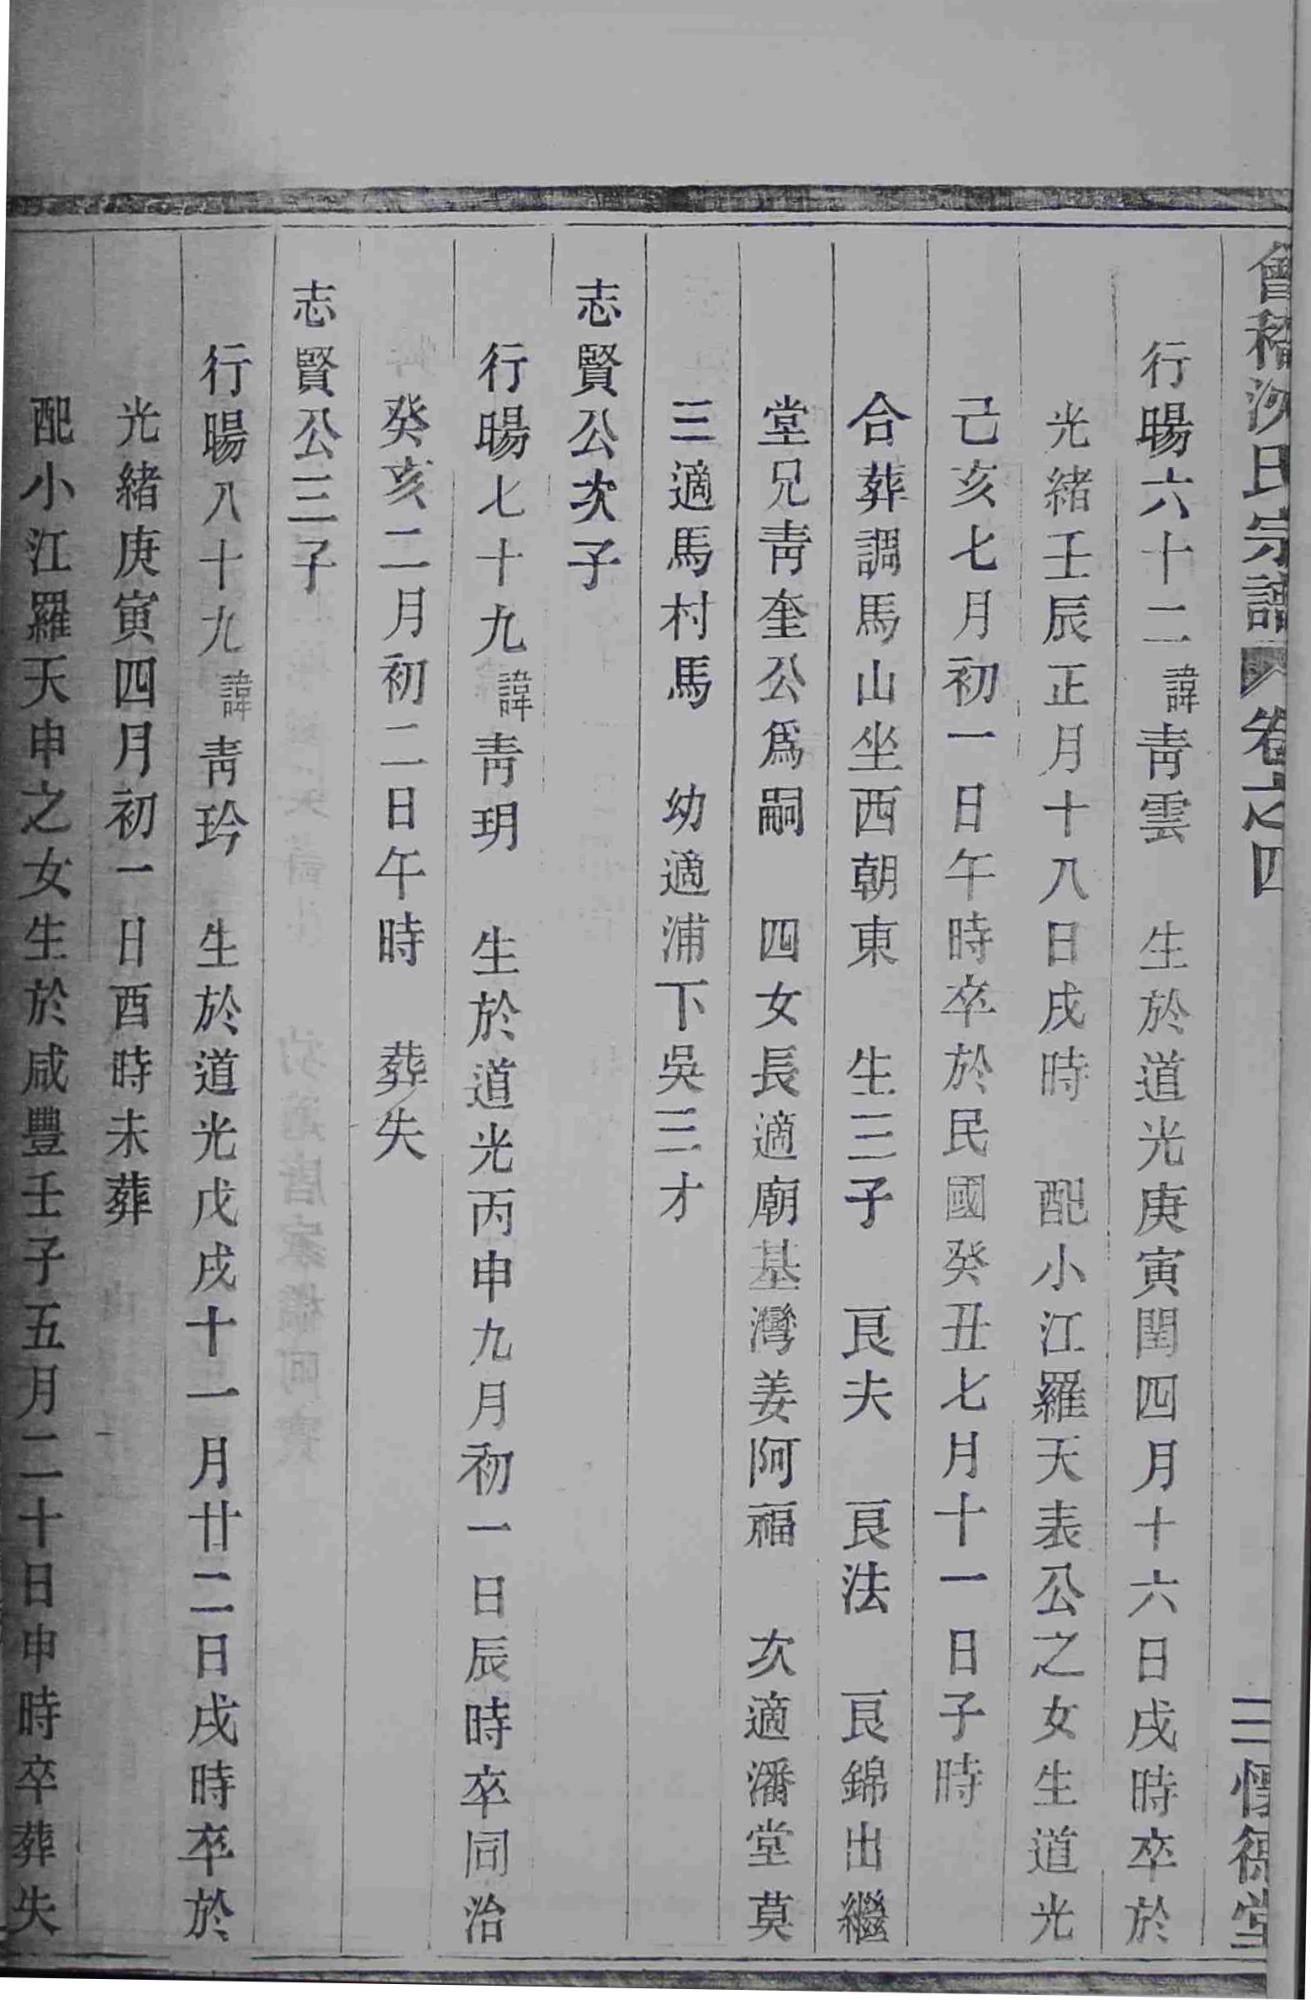 會稽沈氏宗譜 卷之四 三懷德堂
行暘六十二諱靑雲 生於道光庚寅閏四月十六日戌時卒於
光緒壬辰正月十八日戌時 配小江羅天表公之女生道光
己亥七月初一日午時卒於民國癸丑七月十一日子時
合葬調馬山坐西朝東 生三子 良夫 良法 良錦出繼
堂兄靑奎公爲嗣 四女長適廟基灣姜阿福 次適潘堂莫
三適馬村馬 幼適浦下吳三才
志賢公次子
行暘七十九諱靑玥 生於道光丙申九月初一日辰時卒同治
癸亥二月初二日午時 葬失
志賢公三子
行暘八十九諱靑玲 生於道光戊戌十一月廿二日戌時卒於
光緒庚寅四月初一日酉時未葬
配小江羅天申之女生於咸豐壬子五月二十日申時卒葬失